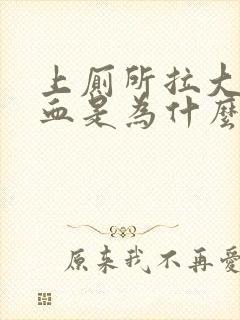 上厕所拉大
血是为什麼
原来我不再愛